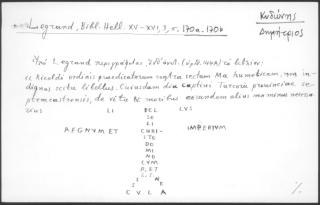 Legrand, Bibl. Hell. XV-XVI, 3, σ. 170α-170β
Κυδώνης
Δημήτριος
Ὑπό Legrand περιγράφεται
Ricoldi ordinis praedicatorum contra sectam Mahumeticam, non in-
dignus scitu libellus. Cuiusdam diu captivi Turcorum provinciae se-
ptemcastrensis, de vita et moribus eorundem alius non minus necessa-
rius LI BEL LVS
SE
AEGNVM ET CVRI- IMPERIVM
TE
DO
MI
NO
CVM
P. ET
S. S.
I N
C V L A